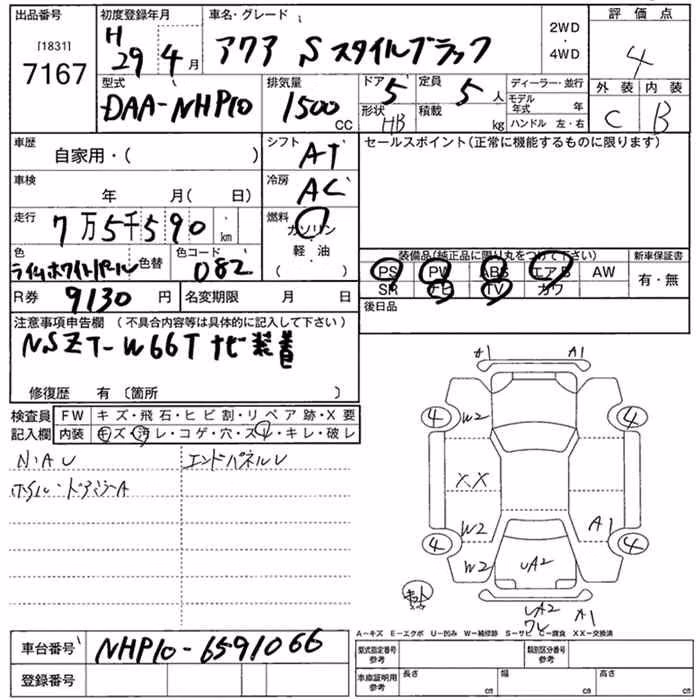 出品番号 初度登録年月 車名・グレード 2WD・4WD 評価点
[1831] 7167 H 29 4月 アクア Sスタイルブラック 4
型式 排気量 ドア 定員 ディーラー・並行 外装 内装
DAA-NHP10 1500 CC 5 5人 モデル年式 年 C B
形状 HB 積載 kg ハンドル 左・右
車歴 自家用・( ) シフト AT セールスポイント(正常に機能するものに限ります)
車検 年 月( 日) 冷房 AC
走行 7万5千590 km 燃料 ガソリン・軽油・( )
色 ライムホワイトパール 色替 色コード 082 装備品(純正品に限り丸をつけて下さい) 新車保証書
PS PW ABS エアB AW 有・無
SR ナビ TV カワ
R券 9130円 名変期限 月 日 後日品
注意事項申告欄 (不具合内容等は具体的に記入して下さい)
NSZT-W66T ナビ装着
修復歴 有 〔箇所 〕
検査員 FW キズ・飛石・ヒビ割・リペア跡・X要
記入欄 内装 キズ・汚レ・コゲ・穴・スレ・キレ・破レ
N・A U エンドパネルU
ホイル・ドアミラーA
A1 A1
4 W2 4
XX
W2 A1
4 W2 UA2 4
UA2 A1
ワレ
A-キズ E-エクボ U-凹み W-補修跡 S-サビ C-腐食 XX-交換済
車台番号 NHP10-6591066 型式指定番号 参考 類別区分番号 参考
登録番号 車庫証明用 参考 長さ cm 幅 cm 高さ cm